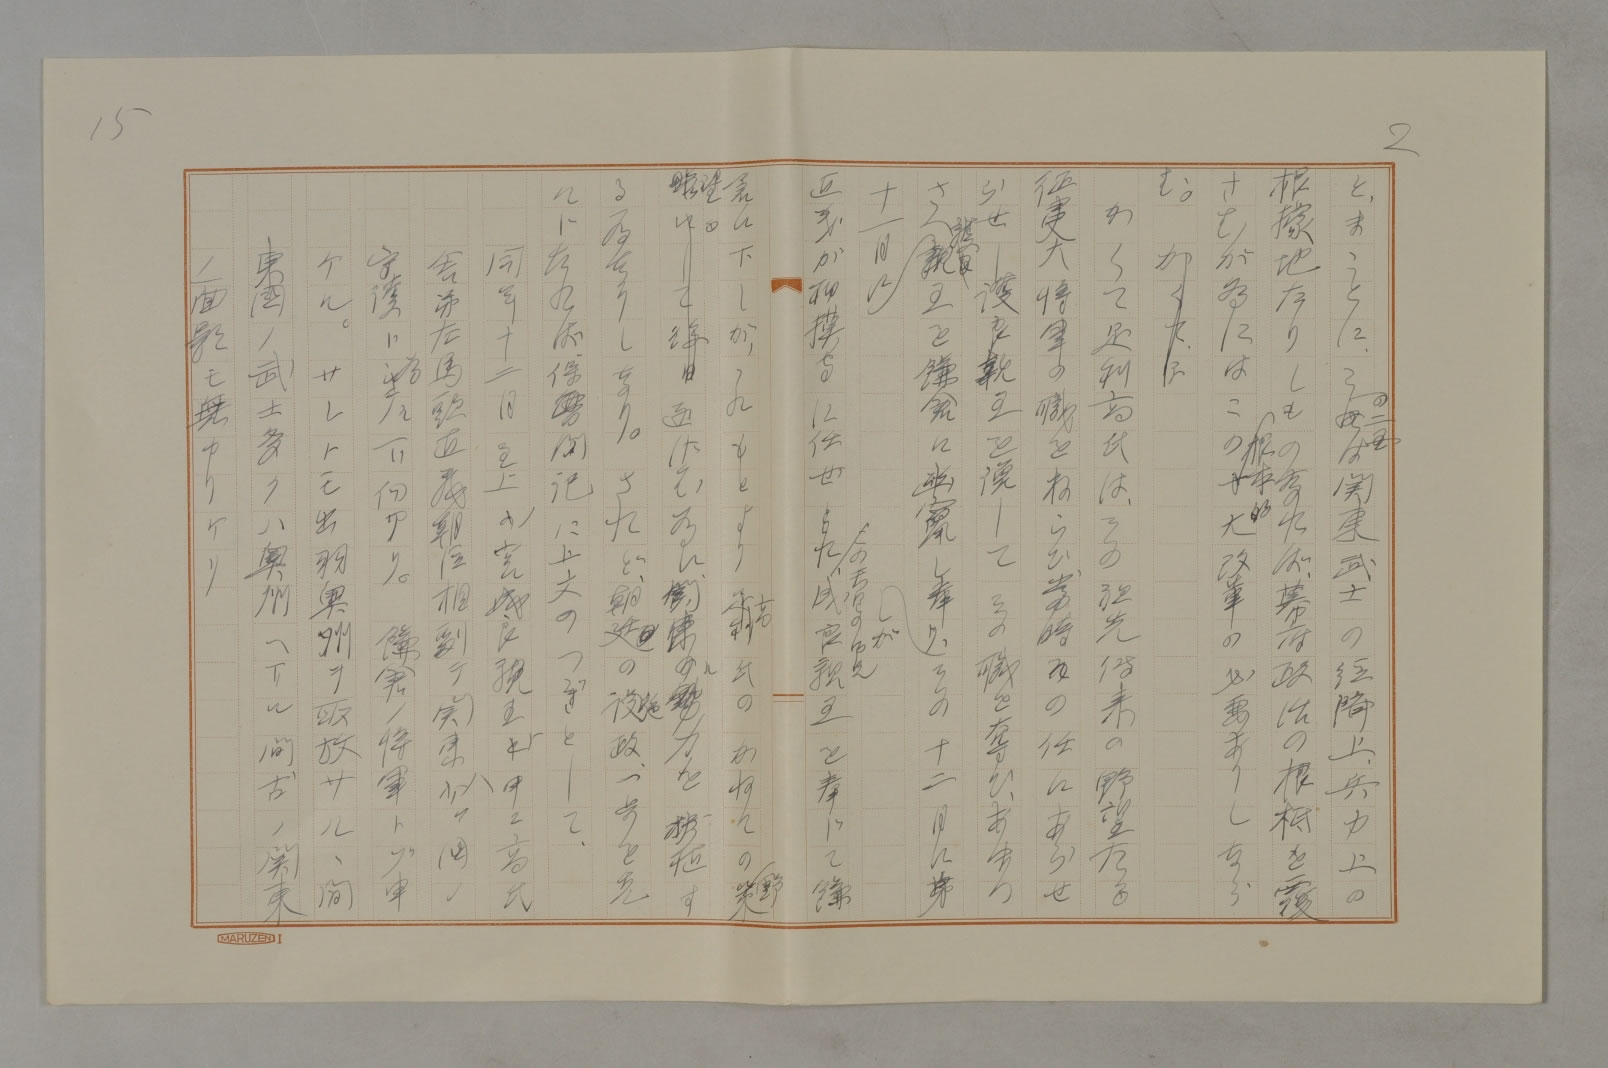 2
と、まことに、この二国は関東武士の経済上、兵力上の
根據地たりしもの、されば、幕府政治の根柢を覆
さむが為にはこの根本的大改革の必要ありしなら
む。
かくて足利高氏は、その祖先傳来の野望たる
征夷大将軍の職をねらひ、当時その任にあらせ
らせし護良親王を讒して、その職を奪ひ、あまつ
さへ親王を鎌倉に幽竄し奉り、その十二月に弟
十一月に
直義が相模守に任せられ、成良親王を奉じて鎌
倉に下りしが、これもとより高氏のかねての野
望を達せむ為に、関東に勢力を扶植す
る為なりしなり。されど、朝廷の設政、一歩を先
んじたれば、保暦間記に上文のつづきとして、
同年十二月主上ノ宮成良親王ヲ申シ高氏
舎弟左馬頭直義朝臣相副テ関東八ケ国ノ
守護ニ下向アリ。鎌倉ノ将軍トゾ申
ケル。サレトモ出羽奥州ヲ取放サルヽ間
東国ノ武士多クハ奥州ヘ下ル間古ノ関東
ノ面影モ無カリケリ
15
MARUZEN I